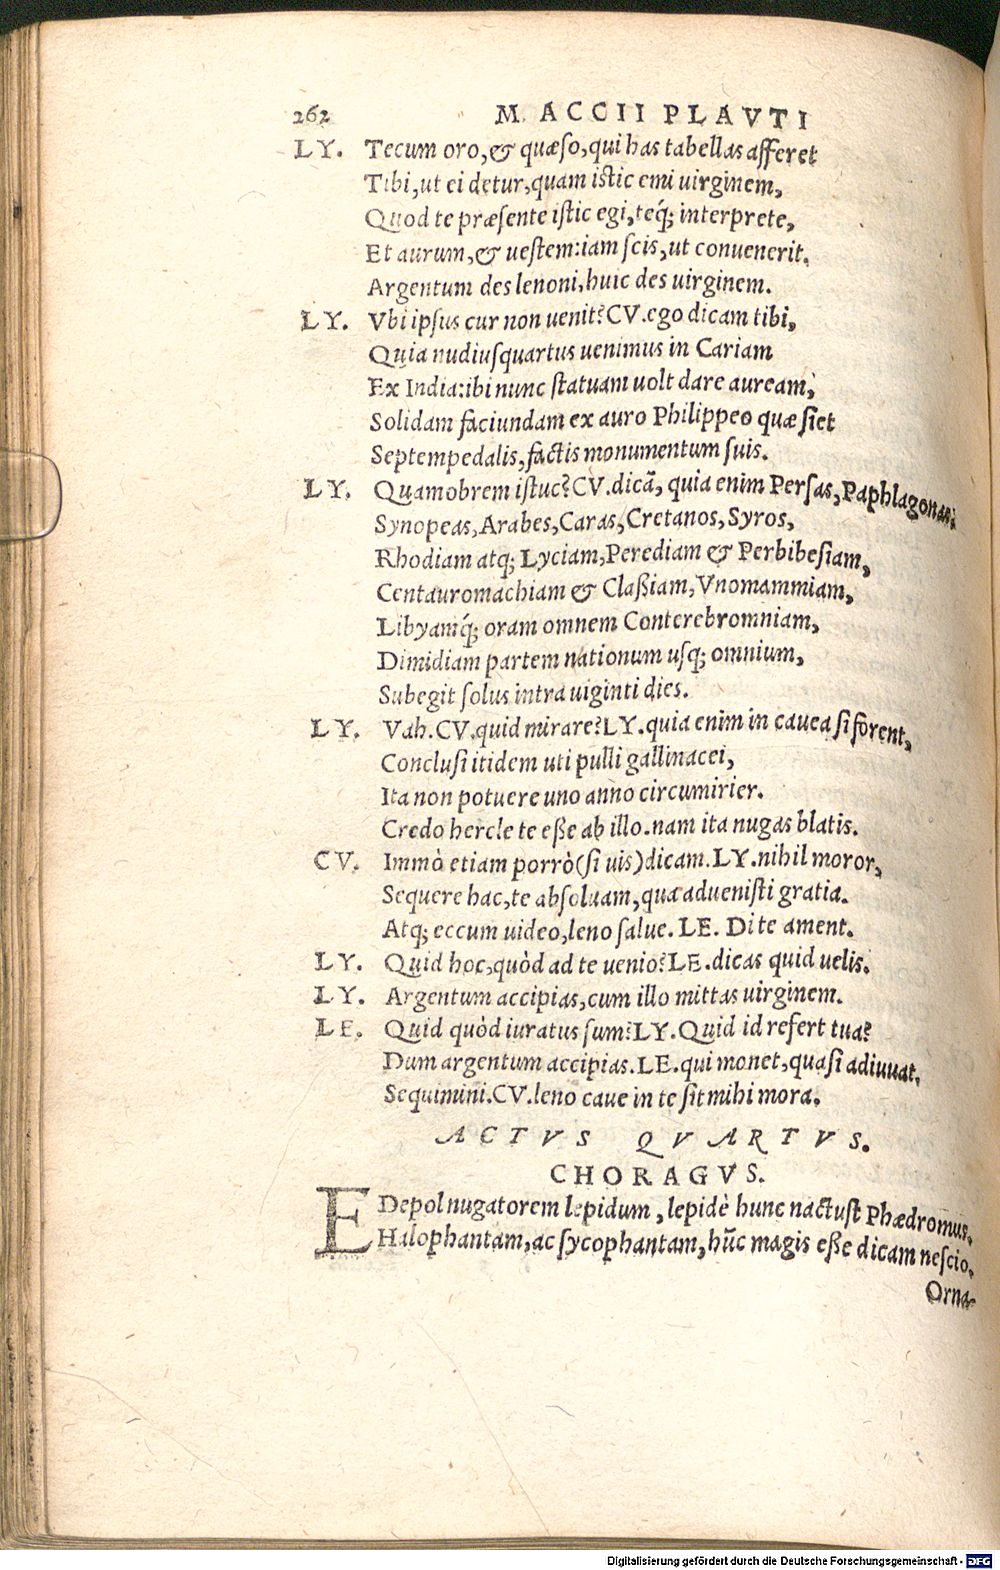 262 M. ACCII PLAVTI
LY. Tecum oro, & quæso, qui has tabellas afferet
Tibi, ut ei detur, quam istic emi uirginem,
Quod te præsente istic egi, teq́; interprete,
Et aurum, & uestem: iam scis, ut conuenerit.
Argentum des lenoni, huic des uirginem.
LY. Vbi ipsus cur non uenit? CV. ego dicam tibi,
Quia nudiusquartus uenimus in Cariam
Ex India: ibi nunc statuam uolt dare auream,
Solidam faciundam ex auro Philippeo quæ siet
Septempedalis, factis monumentum suis.
LY. Quamobrem istuc? CV. dicã, quia enim Persas, Paphlagonas,
Synopeas, Arabes, Caras, Cretanos, Syros,
Rhodiam atq; Lyciam, Perediam & Perbibesiam,
Centauromachiam & Claßiam, Vnomammiam,
Libyamq́; oram omnem Conterebromniam,
Dimidiam partem nationum usq; omnium,
Subegit solus intra uiginti dies.
LY. Vah. CV. quid mirare? LY. quia enim in cauea si forent,
Conclusi itidem uti pulli gallinacei,
Ita non potuere uno anno circumirier.
Credo hercle te eße ab illo. nam ita nugas blatis.
CV. Immò etiam porrò (si uis) dicam. LY. nihil moror,
Sequere hac, te absoluam, qua aduenisti gratia.
Atq; eccum uideo, leno salue. LE. Di te ament.
LY. Quid hoc, quòd ad te uenio? LE. dicas quid uelis.
LY. Argentum accipias, cum illo mittas uirginem.
LE. Quid quòd iuratus sum? LY. Quid id refert tua?
Dum argentum accipias. LE. qui monet, quasi adiuuat.
Sequimini. CV. leno caue in te sit mihi mora.
ACTVS QVARTVS.
CHORAGVS.
EDepol nugatorem lepidum, lepidè hunc nactust Phædromus.
Halophantam, ac sycophantam, hũc magis eße dicam nescio.
Orna-
Digitalisierung gefördert durch die Deutsche Forschungsgemeinschaft - DFG